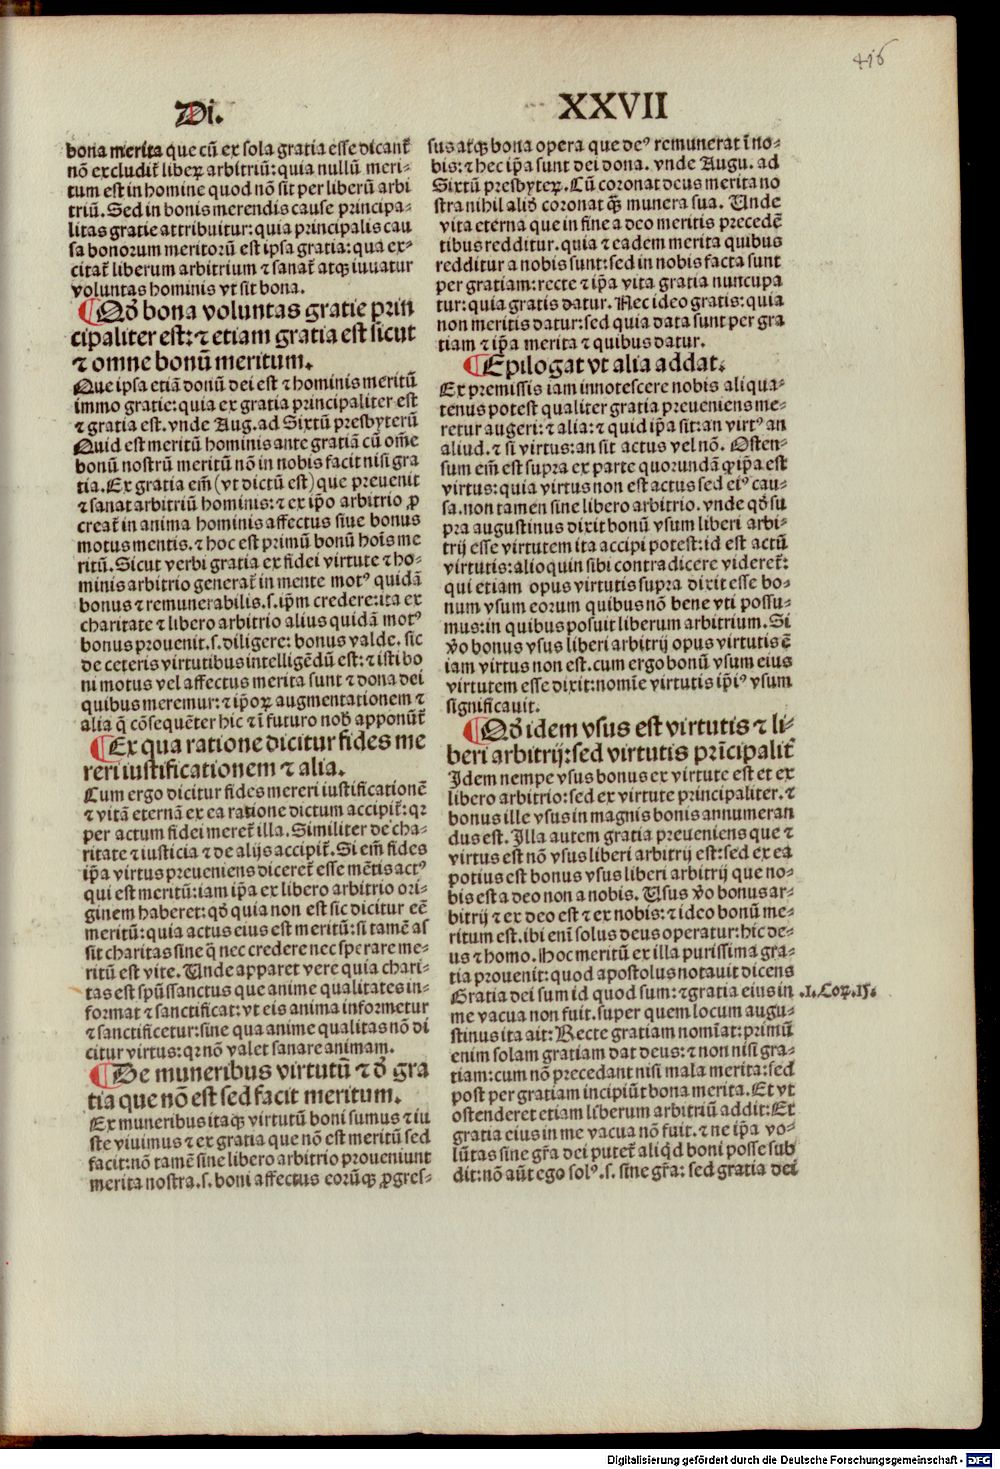 416
Di. XXVII
bona merita que cū ex sola gratia esse dicant᷑
nō excludit᷑ liberꝝ arbitriū: quia nullū meri-
tum est in homine quod nō sit per liberū arbi
triū. Sed in bonis merendis cause principa-
litas gratie attribuitur: quia principalis cau
sa bonorum meritorū est ipsa gratia: qua ex-
citat᷑ liberum arbitrium ⁊ sanat᷑ atqꝫ iuuatur
voluntas hominis vt sit bona.
¶ Qđ bona voluntas gratie prin
cipaliter est: ⁊ etiam gratia est sicut
⁊ omne bonū meritum.
Que ipsa etiā donū dei est ⁊ hominis meritū
immo gratie: quia ex gratia principaliter est
⁊ gratia est. vnde Aug. ad Sixtū presbyterū
Quid est meritū hominis ante gratiā cū om̄e
bonū nostrū meritū nō in nobis facit nisi gra
tia. Ex gratia em̄ (vt dictū est) que preuenit
⁊ sanat arbitriū hominis: ⁊ ex ip̄o arbitrio ꝓ
creat᷑ in anima hominis affectus siue bonus
motus mentis. ⁊ hoc est primū bonū hoīs me
ritū. Sicut verbi gratia ex fidei virtute ⁊ ho-
minis arbitrio generat᷑ in mente motꝰ quidā
bonus ⁊ remunerabilis .s. ip̄m credere: ita ex
charitate ⁊ libero arbitrio alius quidā motꝰ
bonus prouenit .s. diligere: bonus valde. sic
de ceteris virtutibus intelligēdū est: ⁊ isti bo
ni motus vel affectus merita sunt ⁊ dona dei
quibus meremur: ⁊ ip̄oꝝ augmentationem ⁊
alia q̄ cōsequēter hic ⁊ ī futuro nob̄ apponūt᷑
¶ Ex qua ratione dicitur fides me
reri iustificationem ⁊ alia.
Cum ergo dicitur fides mereri iustificationē
⁊ vitā eternā ex ea ratione dictum accipit᷑: qꝛ
per actum fidei meret᷑ illa. Similiter de cha-
ritate ⁊ iusticia ⁊ de alijs accipit᷑. Si em̄ fides
ip̄a virtus preueniens diceret᷑ esse mētis actꝰ
qui est meritū: iam ip̄a ex libero arbitrio ori-
ginem haberet: qđ quia non est sic dicitur eē
meritū: quia actus eius est meritū: si tamē as
sit charitas sine q̄ nec credere nec sperare me-
ritū est vite. Unde apparet vere quia chari-
tas est spūssanctus que anime qualitates in-
format ⁊ sanctificat: vt eis anima informetur
⁊ sanctificetur: sine qua anime qualitas nō di
citur virtus: qꝛ nō valet sanare animam.
¶ De muneribus virtutū ⁊ đ gra
tia que nō est sed facit meritum.
Ex muneribus itaqꝫ virtutū boni sumus ⁊ iu
ste viuimus ⁊ ex gratia que nō est meritū sed
facit: nō tamē sine libero arbitrio proueniunt
merita nostra .s. boni affectus eorūqꝫ ꝓgres-
sus atqꝫ bona opera que deꝰ remunerat ī no-
bis: ⁊ hec ip̄a sunt dei dona. vnde Augu. ad
Sixtū presbyteꝝ. Cū coronat deus merita no
stra nihil aliđ coronat qꝫ̄ munera sua. Unde
vita eterna que in fine a deo meritis precedē
tibus redditur. quia ⁊ eadem merita quibus
redditur a nobis sunt: sed in nobis facta sunt
per gratiam: recte ⁊ ip̄a vita gratia nuncupa
tur: quia gratis datur. Nec ideo gratis: quia
non meritis datur: sed quia data sunt per gra
tiam ⁊ ip̄a merita ⁊ quibus datur.
¶ Epilogat vt alia addat.
Ex premissis iam innotescere nobis aliqua-
tenus potest qualiter gratia preueniens me-
retur augeri: ⁊ alia: ⁊ quid ip̄a sit: an virtꝰ an
aliud. ⁊ si virtus: an sit actus vel nō. Osten-
sum em̄ est supra ex parte quorundā ꝙ ip̄a est
virtus: quia virtus non est actus sed eiꝰ cau-
sa. non tamen sine libero arbitrio. vnde qđ su
pra augustinus dixit bonū vsum liberi arbi-
trij esse virtutem ita accipi potest: id est actū
virtutis: alioquin sibi contradicere videret᷑:
qui etiam opus virtutis supra dixit esse bo-
num vsum eorum quibus nō bene vti possu-
mus: in quibus posuit liberum arbitrium. Si
v̊o bonus vsus liberi arbitrij opus virtutis ē
iam virtus non est. cum ergo bonū vsum eius
virtutem esse dixit: nomīe virtutis ip̄iꝰ vsum
significauit.
¶ Qđ idem vsus est virtutis ⁊ li-
beri arbitrij: sed virtutis prīcipalit᷑
Idem nempe vsus bonus ex virtute est et ex
libero arbitrio: sed ex virtute principaliter. ⁊
bonus ille vsus in magnis bonis annumeran
dus est. Illa autem gratia preueniens que ⁊
virtus est nō vsus liberi arbitrij est: sed ex ea
potius est bonus vsus liberi arbitrij que no-
bis est a deo non a nobis. Usus v̊o bonus ar-
bitrij ⁊ ex deo est ⁊ ex nobis: ⁊ ideo bonū me-
ritum est. ibi enī solus deus operatur: hic de-
us ⁊ homo. Hoc meritū ex illa purissima gra-
tia prouenit: quod apostolus notauit dicens
Gratia dei sum id quod sum: ⁊ gratia eius in .1. Coꝝ. 15.
me vacua non fuit. super quem locum augu-
stinus ita ait: Recte gratiam nomīat: primū
enim solam gratiam dat deus: ⁊ non nisi gra-
tiam: cum nō precedant nisi mala merita: sed
post per gratiam incipiūt bona merita. Et vt
ostenderet etiam liberum arbitriū addit: Et
gratia eius in me vacua nō fuit. ⁊ ne ip̄a vo-
lūtas sine gr̄a dei putet᷑ aliqđ boni posse sub
dit: nō aūt ego solꝰ .s. sine gr̄a: sed gratia dei
Digitalisierung gefördert durch die Deutsche Forschungsgemeinschaft - DFG